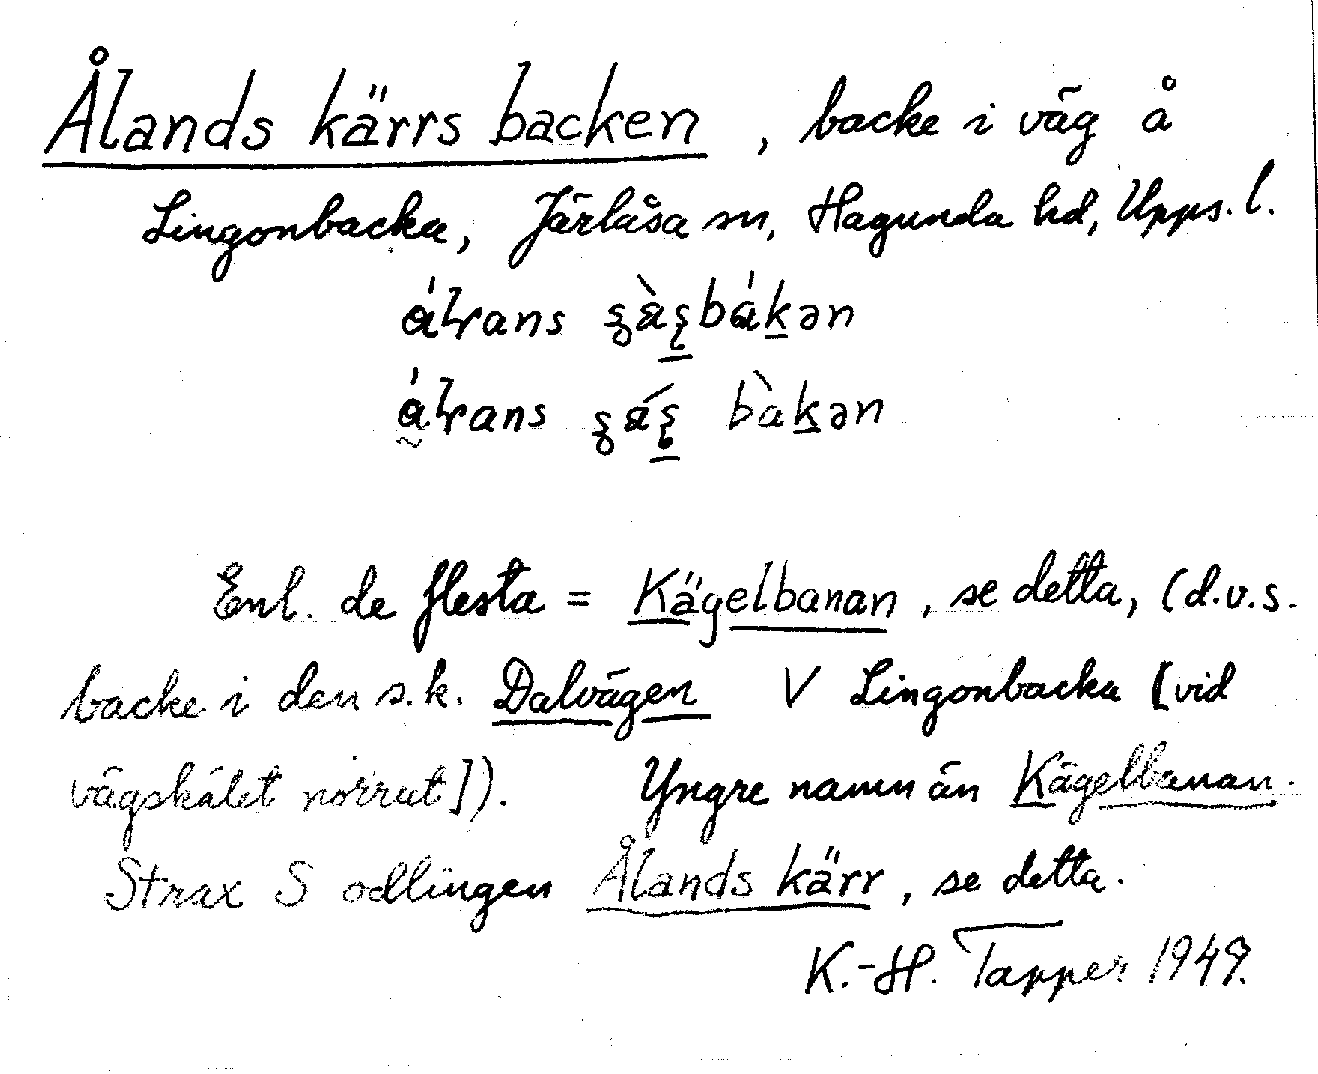 Ålands kärrs backen, backe i väg å
Lingonbacka, Järlåsa sn, Hagunda hd, Upps. l.
Enl. de flesta = Kägelbanan, se detta, (d.v.s.
backe i den s.k. Dalvägen V Lingonbacka [vid
vägskälet norrut]). Yngre namn än Kägelbanan.
Strax S odlingen Ålands kärr, se detta.
K.-H. Tapper 1949.